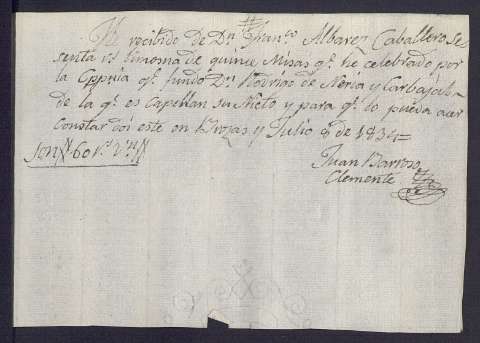 He recibido de Dn. Franco. Albarez Caballero Se-
senta rs. limosna de quince Misas qe. he celebrado por
la Cppnia qe. fundo Dn. Rodrigo de Neria y Carbajal
de la qe. es Capellan su Nieto y para qe. lo pueda acer
Constar doi este en Brojas y Julio 8 de 1834=
Son 60 rs. Vn.
Juan Barroso
Clemente